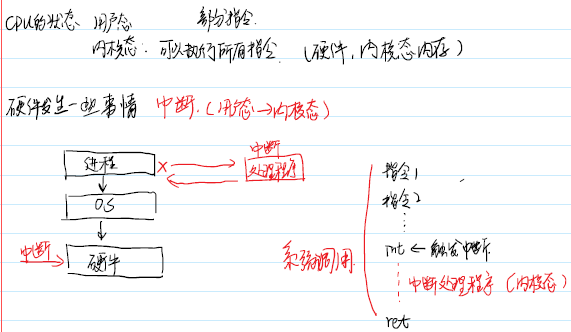 CPU的状态 用户态 部分指令.
内核态: 可以执行所有指令 (硬件, 内核态内存)
硬件发生一些事情 中断. (用态→内核态)
进程
×
中断
处理程序
OS
中断
硬件
系统调用
指令1
指令2
int ← 触发中断.
中断处理程序 (内核态)
ret